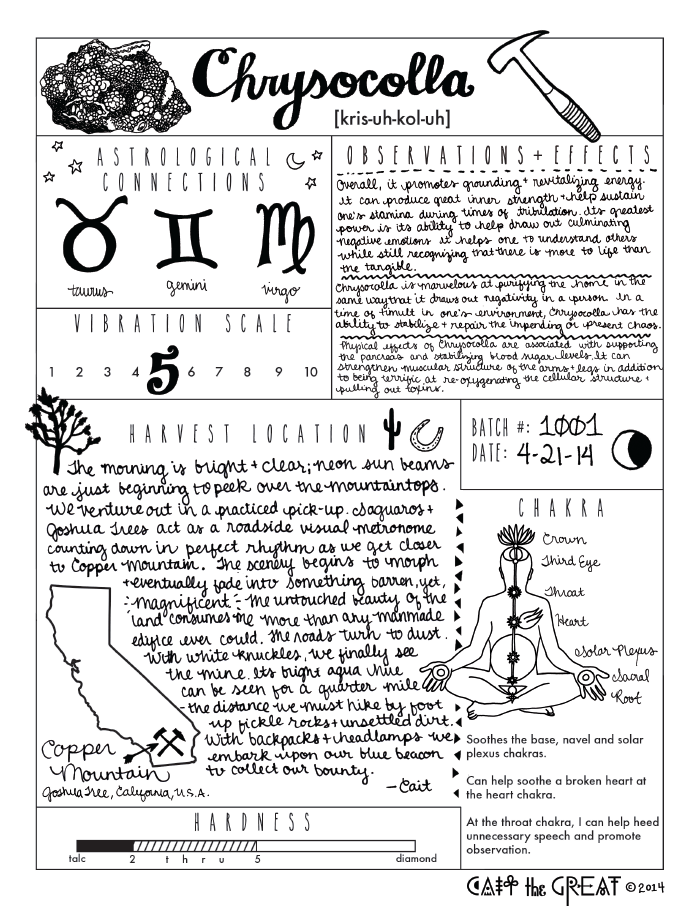 Chrysocolla
[kris-uh-kol-uh]
ASTROLOGICAL
CONNECTIONS
taurus
gemini
virgo
VIBRATION SCALE
1 2 3 4 5 6 7 8 9 10
OBSERVATIONS + EFFECTS
Overall, it promotes grounding + revitalizing energy.
It can produce great inner strength + help sustain
one's stamina during times of tribulation. Its greatest
power is its ability to help draw out culminating
negative emotions. It helps one to understand others
while still recognizing that there is more to life than
the tangible.
Chrysocolla is marvelous at purifying the home in the
same way that it draws out negativity in a person. In a
time of tumult in one's environment, Chrysocolla has the
ability to stabilize + repair the impending or present chaos.
Physical effects of Chrysocolla are associated with supporting
the pancreas and stabilizing blood sugar levels. It can
strengthen muscular structure of the arms + legs in addition
to being terrific at re-oxygenating the cellular structure +
pulling out toxins.
HARVEST LOCATION
The morning is bright + clear; neon sun beams
are just beginning to peek over the mountaintops.
We venture out in a practiced pick-up. Saguaros +
Joshua Trees act as a roadside visual metronome
counting down in perfect rhythm as we get closer
to Copper Mountain. The scenery begins to morph
+ eventually fade into something barren, yet,
magnificent - the untouched beauty of the
land consumes me more than any manmade
edifice ever could. The roads turn to dust.
With white knuckles, we finally see
the mine. Its bright aqua hue
can be seen for a quarter mile
- the distance we must hike by foot
up fickle rocks + unsettled dirt.
With backpacks + headlamps we
embark upon our blue beacon
to collect our bounty.
-Cait
Copper
Mountain
Joshua Tree, California, U.S.A.
BATCH #: 1001
DATE: 4-21-14
CHAKRA
Crown
Third Eye
Throat
Heart
Solar Plexus
Sacral
Root
Soothes the base, navel and solar
plexus chakras.
Can help soothe a broken heart at
the heart chakra.
At the throat chakra, I can help heed
unnecessary speech and promote
observation.
HARDNESS
talc 2 thru 5 diamond
CAIT the GREAT © 2014